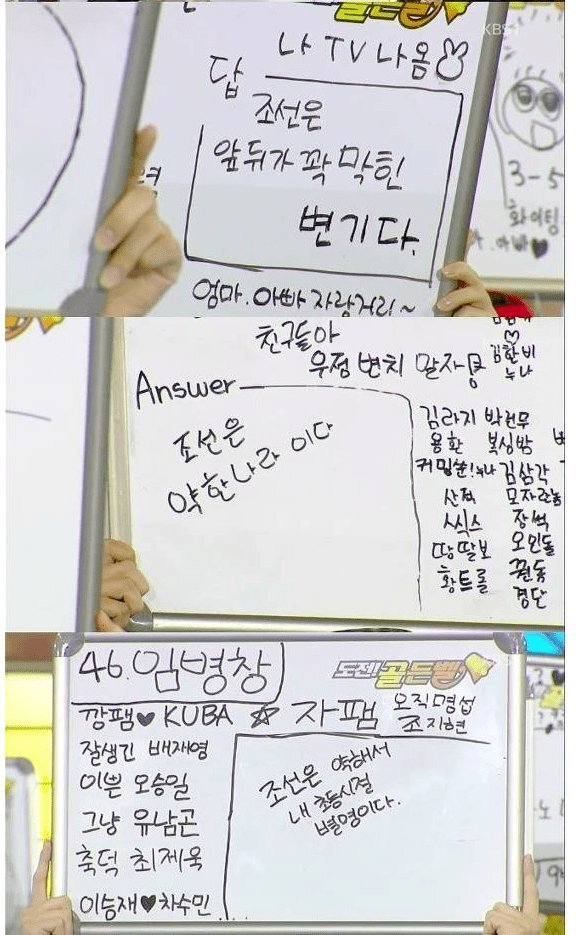 골든벨
KBS1
나 TV 나옴
답
조선은
앞뒤가 꽉 막힌
변기다.
엄마. 아빠 자랑거리~
3-5
화이팅
아빠♥
친구들아
우정 변치 말자
김환비
누나
Answer
조선은
약한나라 이다
김라지 박현무
용환 복싱밤
커밍쑨!누나 김삼각
산적 모자란놈
시식스 장썩
땅딸보 오인돌
황트롤 꿘둙
경단
46. 임병창
도전! 골든벨
깡팸♥ KUBA ☆ 자팸
오직명섭
조지현
잘생긴 배재영
이쁜 오승일
그냥 유남곤
축덕 최제욱
이승재♥차수민
조선은 약해서
내 초등시절
별명이다.